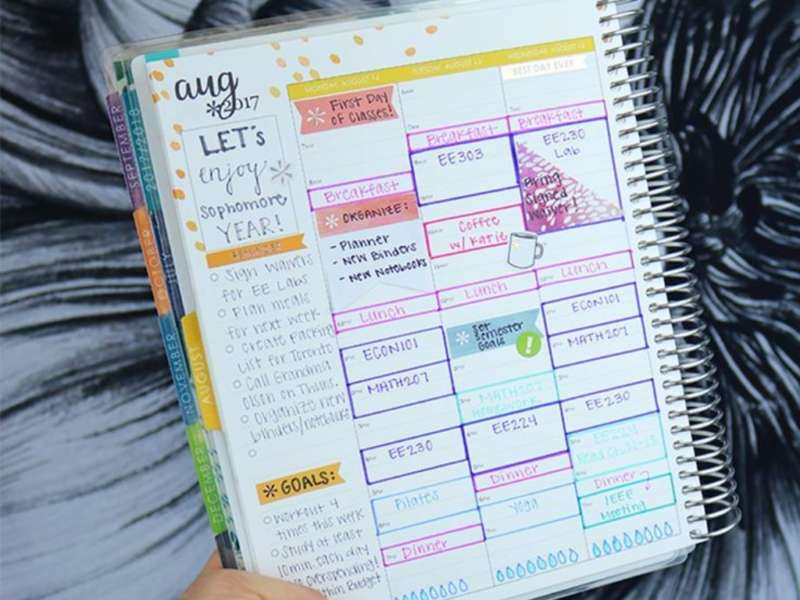 SEPTEMBER
OCTOBER
NOVEMBER
DECEMBER
2017/2018
JULY
AUGUST
aug
*2017
LET'S
enjoy
sophomore
YEAR!
Sign Waivers
for EE Labs
Plan meals
for next week
Create packing
List for Toronto
Call Grandma
Olson on Thurs.
Organize new
binders/notebooks
*GOALS:
Workout 4
times this week
Study at least
10min each day
overspending!
thin Budget
MONDAY, AUGUST
First Day
of Classes!
Breakfast
ORGANIZE:
- Planner
- New Binders
- New Notebooks
Lunch
ECON101
MATH207
EE230
Pilates
Dinner
TUESDAY, AUGUST
Breakfast
EE303
Coffee
w/ Katie
Lunch
Set
Semester
Goals
!
MATH207
Homework
EE224
Dinner
Yoga
WEDNESDAY, AUGUST
BEST DAY EVER
Breakfast
EE230
Lab
Bring
Signed
Waiver!
Lunch
ECON101
MATH207
EE230
EE224
Read Ch.
Dinner
IEEE
Meeting